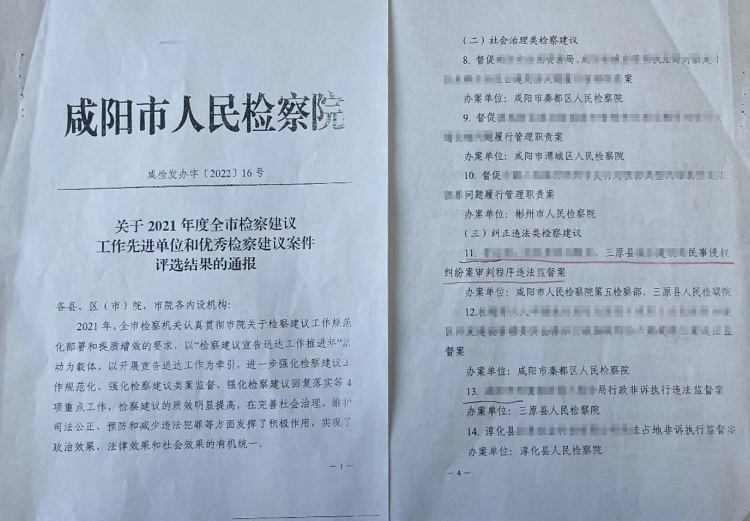 咸阳市人民检察院
咸检发办字〔2022〕16号
关于2021年度全市检察建议
工作先进单位和优秀检察建议案件
评选结果的通报
各县、区（市）院，市院各内设机构：
2021年，全市检察机关认真贯彻市院关于检察建议工作规范
化部署和提质增效的要求，以“检察建议宣告送达工作推进年”活
动为载体，以开展宣告送达工作为牵引，进一步强化检察建议工
作规范化、强化检察建议类案监督、强化检察建议回复落实等4
项重点工作，检察建议的质效明显提高，在完善社会治理，维护
司法公正，预防和减少违法犯罪等方面发挥了积极作用，实现了
政治效果、法律效果和社会效果的有机统一。
—1—
（二）社会治理类检察建议
8. 督促
案
办案单位：咸阳市秦都区人民检察院
9. 督促
问题履行管理职责案
办案单位：咸阳市渭城区人民检察院
10. 督促
问题履行管理职责案
办案单位：彬州市人民检察院
（三）纠正违法类检察建议
11. 、三原县 民事侵权
纠纷案审判程序违法监督案
办案单位：咸阳市人民检察院第五检察部、三原县人民检察院
12.
督案
办案单位：咸阳市秦都区人民检察院
13. 局行政非诉执行违法监督案
办案单位：三原县人民检察院
14. 淳化县 法占地非诉执行监督案
办案单位：淳化县人民检察院
—4—